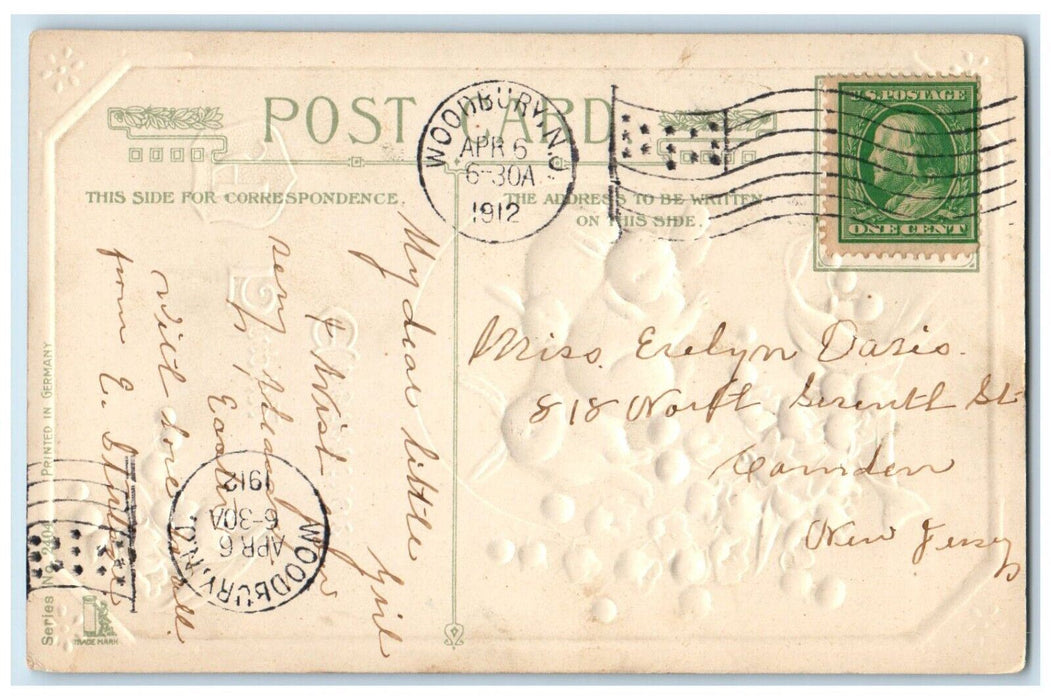 POST CARD
THIS SIDE FOR CORRESPONDENCE.
THE ADDRESS TO BE WRITTEN
ON THIS SIDE.
WOODBURY, N.J.
APR 6
6-30A
1912
U.S. POSTAGE
ONE CENT
My dear little Girl
I wish you
very happy
Easter
with love
from E.
Miss Evelyn Davis.
818 North Seventh St
Camden
New Jersey
WOODBURY, N.J.
APR 6
6-30A
1912
Series No. 2404 PRINTED IN GERMANY
TRADE MARK